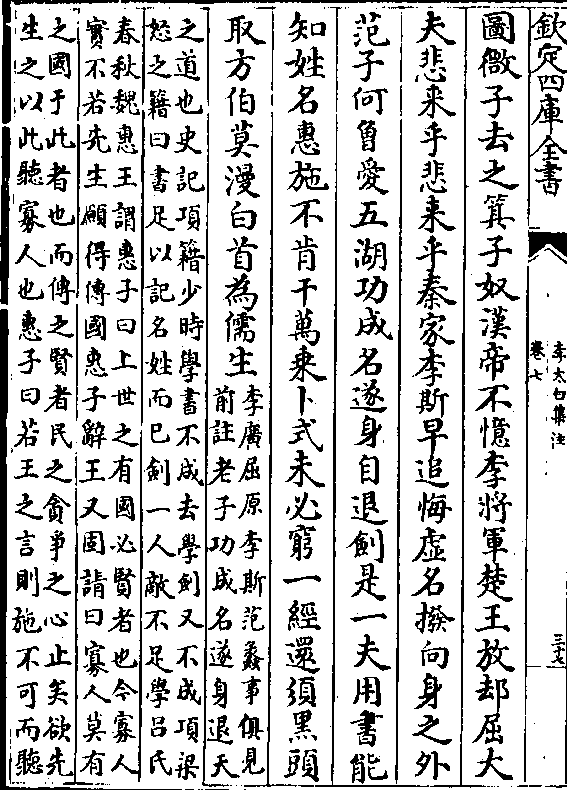 欽定四庫全書
李太白集注
卷七
三十七
圖微子去之箕子奴漢帝不憶李將軍楚王放却屈大
夫悲来乎悲来乎秦家李斯早追悔虚名撥向身之外
范子何曾愛五湖功成名遂身自退劍是一夫用書能
知姓名惠施不肯干萬乗卜式未必窮一經還須黑頭
取方伯莫漫白首為儒生
李廣屈原李斯范蠡事俱見
前註老子功成名遂身退天
之道也史記項籍少時學書不成去學劍又不成項梁
怒之籍曰書足以記名姓而已劍一人敵不足學吕氏
春秋魏惠王謂惠子曰上世之有國必賢者也今寡人
實不若先生願得傳國惠子辭王又固請曰寡人莫有
之國于此者也而傳之賢者民之貪爭之心止矣欲先
生之以此聽寡人也惠子曰若王之言則施不可而聽